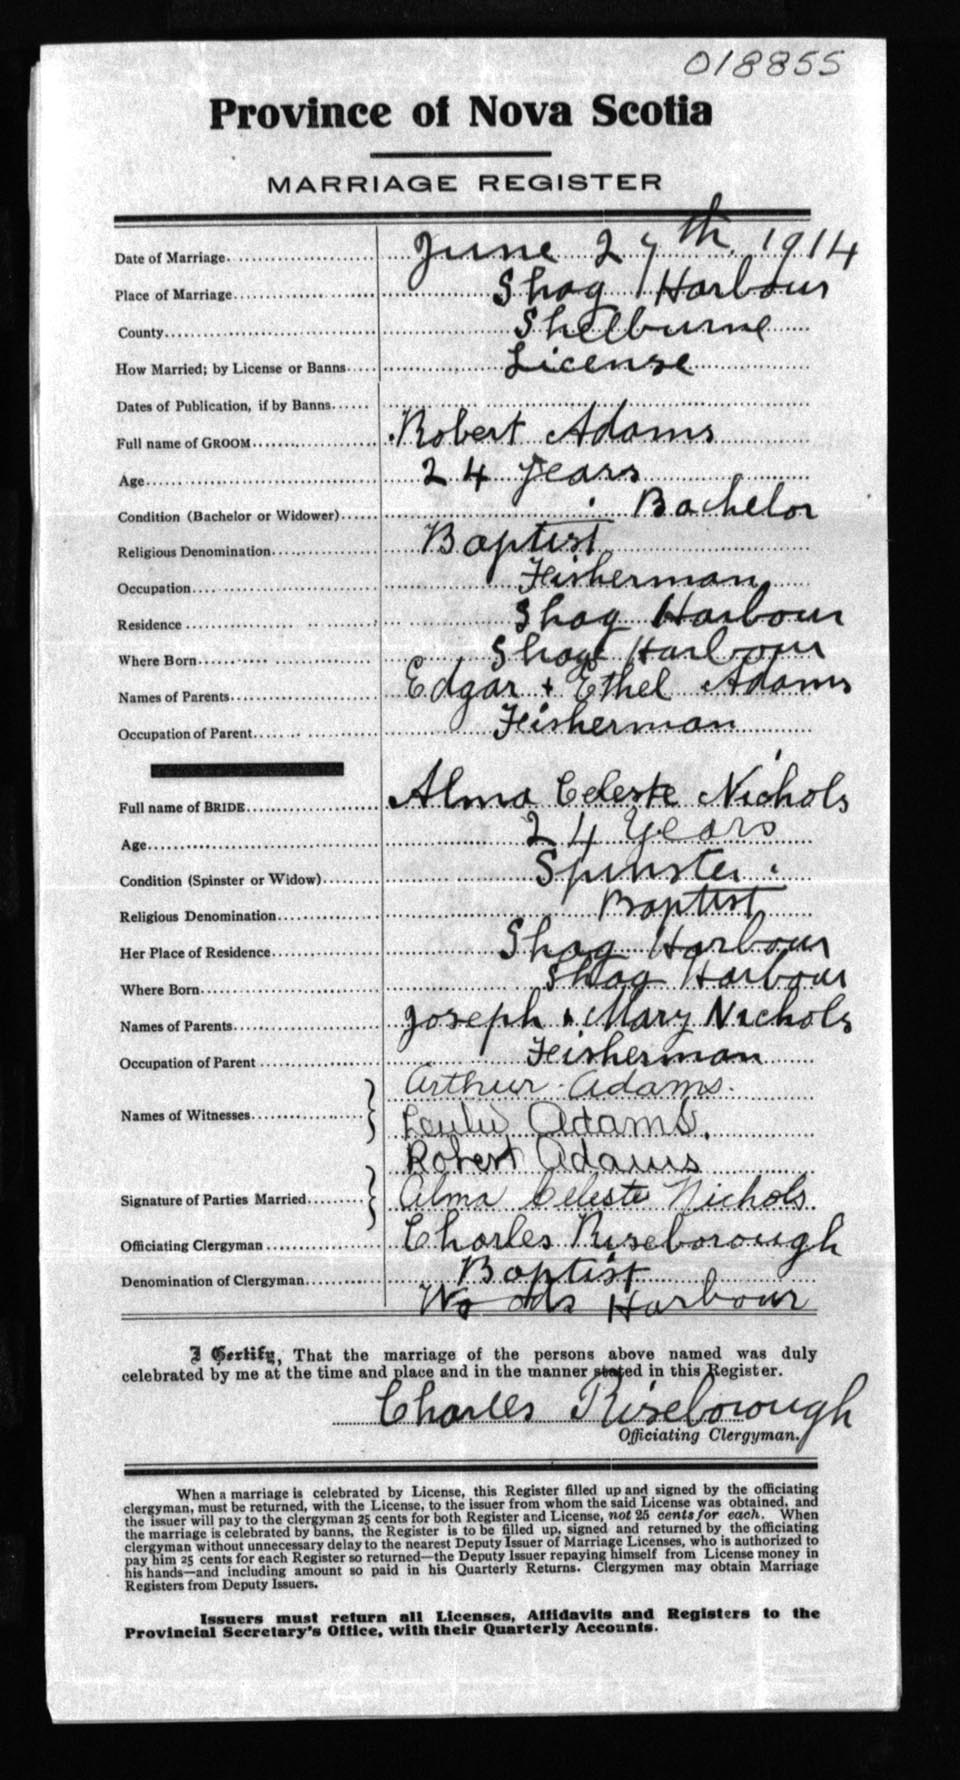 018855
Province of Nova Scotia
MARRIAGE REGISTER
Date of Marriage June 27th 1914
Place of Marriage Shag Harbour
County Shelburne
How Married; by License or Banns License
Dates of Publication, if by Banns
Full name of GROOM Robert Adams
Age 24 years
Condition (Bachelor or Widower) Bachelor
Religious Denomination Baptist
Occupation Fisherman
Residence Shag Harbour
Where Born Shag Harbour
Names of Parents Edgar + Ethel Adams
Occupation of Parent Fisherman
Full name of BRIDE Alma Celeste Nichols
Age 24 Years
Condition (Spinster or Widow) Spinster
Religious Denomination Baptist
Her Place of Residence Shag Harbour
Where Born Shag Harbour
Names of Parents Joseph + Mary Nichols
Occupation of Parent Fisherman
Arthur Adams.
Names of Witnesses
Adams.
Robert Adams
Signature of Parties Married Alma Celeste Nichols
Officiating Clergyman Charles Riseborough
Denomination of Clergyman Baptist
Woods Harbour
I Certify, That the marriage of the persons above named was duly
celebrated by me at the time and place and in the manner stated in this Register.
Charles Riseborough
Officiating Clergyman.
When a marriage is celebrated by License, this Register filled up and signed by the officiating
clergyman, must be returned, with the License, to the issuer from whom the said License was obtained, and
the issuer will pay to the clergyman 25 cents for both Register and License, not 25 cents for each. When
the marriage is celebrated by banns, the Register is to be filled up, signed and returned by the officiating
clergyman without unnecessary delay to the nearest Deputy Issuer of Marriage Licenses, who is authorized to
pay him 25 cents for each Register so returned—the Deputy Issuer repaying himself from License money in
his hands—and including amount so paid in his Quarterly Returns. Clergymen may obtain Marriage
Registers from Deputy Issuers.
Issuers must return all Licenses, Affidavits and Registers to the
Provincial Secretary's Office, with their Quarterly Accounts.